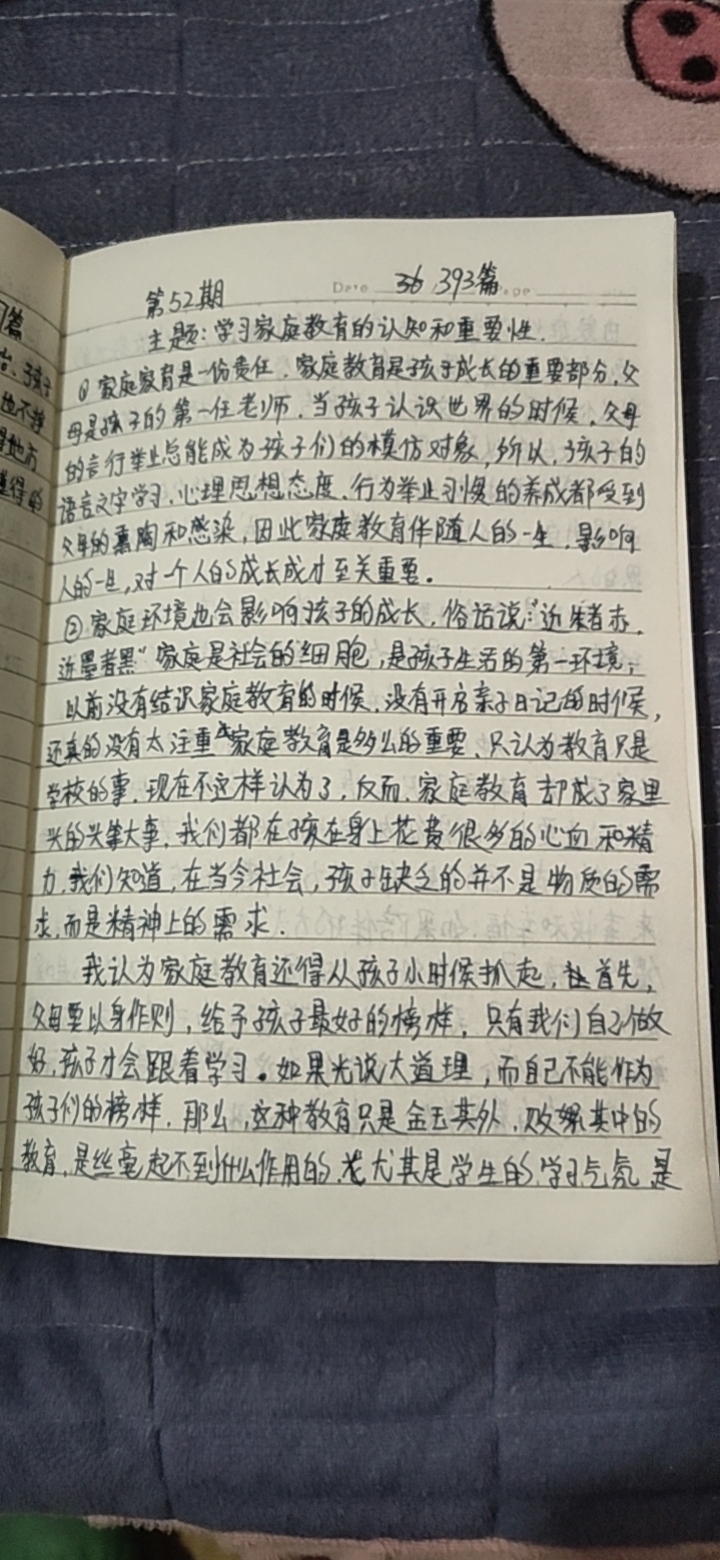 第52期
Date 393篇
主题：学习家庭教育的认知和重要性.
① 家庭家育是一份责任．家庭教育是孩子成长的重要部分，父
母是孩子的第一任老师．当孩子认识世界的时候，父母
的言行举止总能成为孩子们的模仿对象，所以，孩子的
语言文字学习，心理思想态度，行为举止习惯的养成都受到
父母的熏陶和感染，因此家庭教育伴随人的一生，影响
人的一旦，对一个人的成长成才至关重要。
② 家庭环境也会影响孩子的成长，俗话说："近朱者赤，
近墨者黑"家庭是社会的细胞，是孩子生活的第一环境；
以前没有结识家庭教育的时候，没有开启亲子日记的时候，
还真的没有太注重家庭教育是多么的重要，只认为教育只是
学校的事，现在不这样认为了，反而，家庭教育却成了家里
头的头等大事，我们都在孩在身上花费很多的心血和精
力，我们知道，在当今社会，孩子缺乏的并不是物质的需
求，而是精神上的需求．
我认为家庭教育还得从孩子小时候抓起，首先，
父母要以身作则，给予孩子最好的榜样，只有我们自己做
好，孩子才会跟着学习。如果光说大道理，而自己不能作为
孩子们的榜样，那么，这种教育只是金玉其外，败絮其中的
教育，是丝毫起不到什么作用的，尤其是学生的学习气氛是
篇
孩子
也不
的